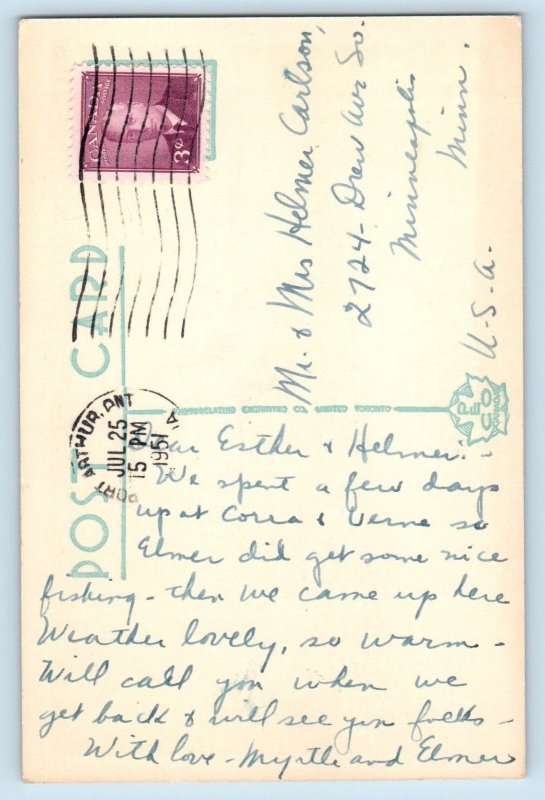 CANADA
3¢
POST CARD
PORT ARTHUR, ONT
JUL 25
15 PM
1951
Mr. & Mrs Helmer Carlson,
2724- Drew Ave So.
Minneapolis
Minn.
U-S-A.
PHOTOGELATINE ENGRAVING CO. LIMITED TORONTO
PECO
Dear Esther & Helmer:-
We spent a few days
up at Corra & Verne so
Elmer did get some nice
fishing - then we came up here
Weather lovely, so warm -
Will call you when we
get back & will see you folks -
With love - Myrtle and Elmer